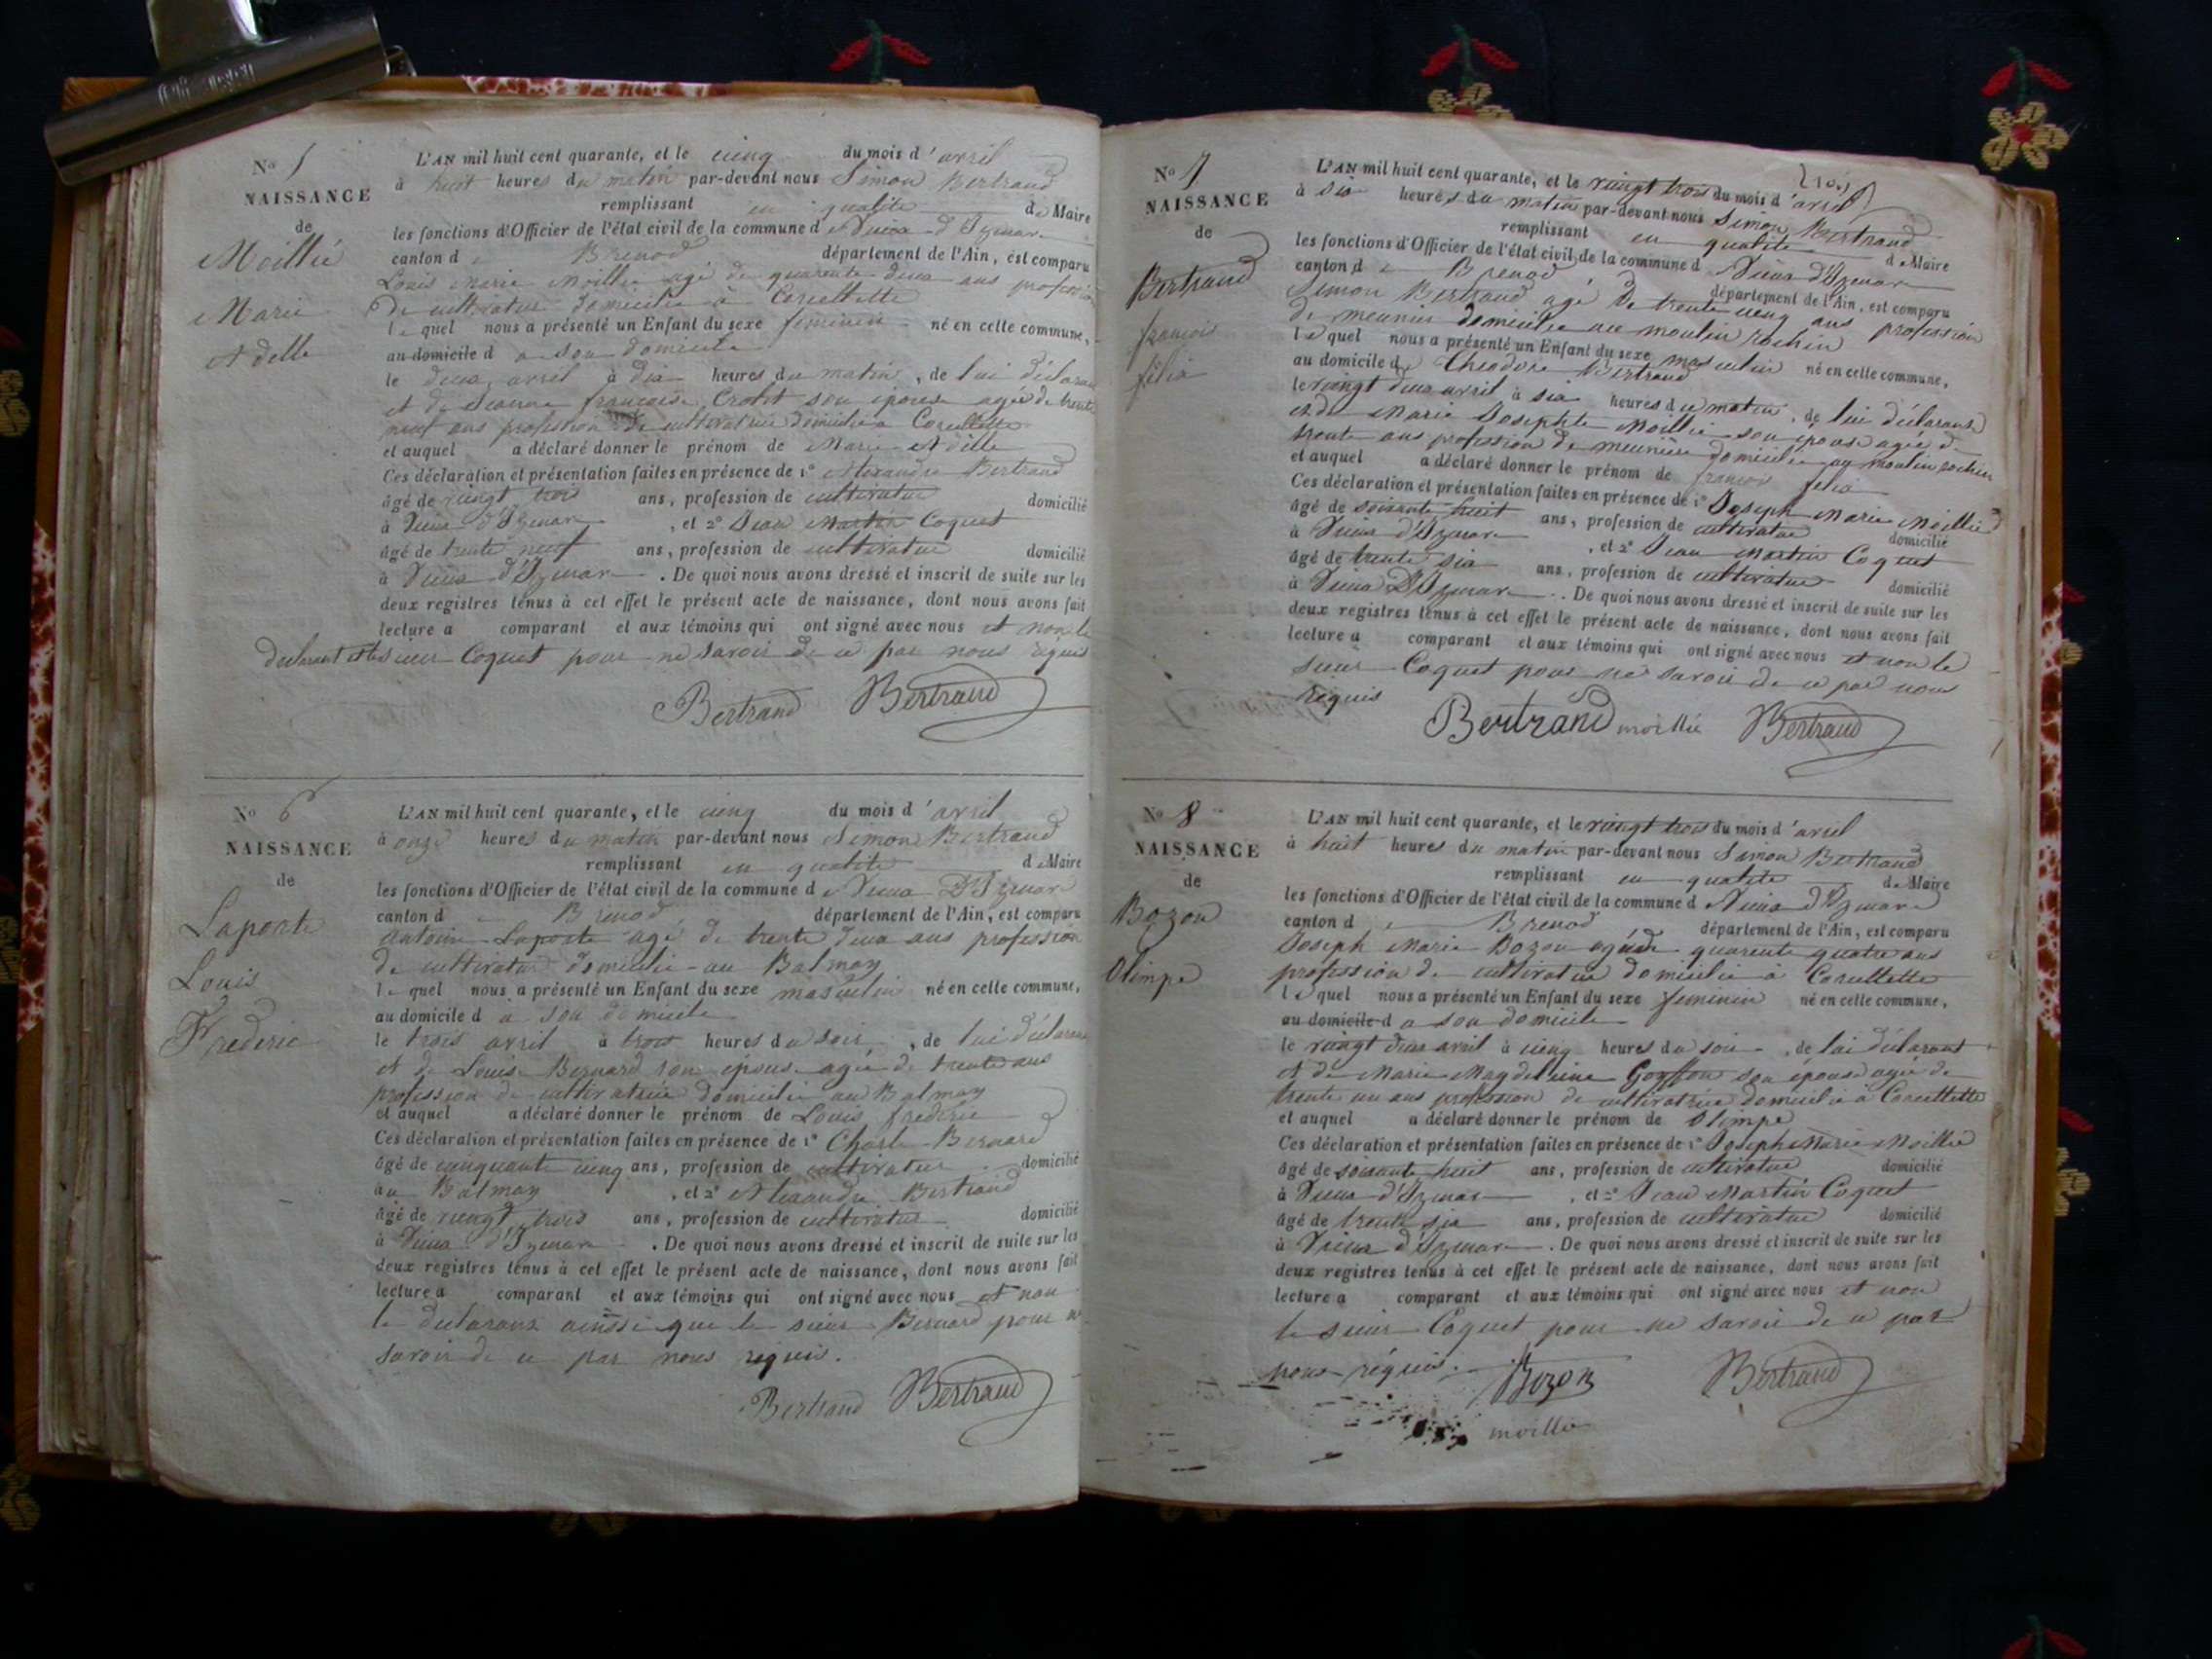 N° 5
NAISSANCE
de
Moillié
Marie
Adelle
L'AN mil huit cent quarante, et le cinq du mois d'avril
à huit heures du matin par-devant nous Simon Bertrand
remplissant en qualité de Maire
les fonctions d'Officier de l'état civil de la commune de Vieux d'Izenave
canton de Brenod département de l'Ain, est comparu
Louis Marie Moillié agé de quarente deux ans profession
de cultivateur domicilié à Corcellette
lequel nous a présenté un Enfant du sexe feminin né en cette commune,
au domicile d a son domicile
le deux avril à dix heures du matin, de lui déclarant
et de Jeanne françoise Crotit son épouse agée de trente
neuf ans profession de cultivatrice domicilié a Corcellette
et auquel a déclaré donner le prénom de Marie Adille
Ces déclaration et présentation faites en présence de 1° Alexandre Bertrand
âgé de vingt trois ans, profession de cultivateur domicilié
à Vieux d'Izenave, et 2° Jean Martin Coquet
âgé de trente neuf ans, profession de cultivateur domicilié
à Vieux d'Izenave. De quoi nous avons dressé et inscrit de suite sur les
deux registres tenus à cet effet le présent acte de naissance, dont nous avons fait
lecture a comparant et aux témoins qui ont signé avec nous et non le
declarant et le sieur Coquet pour ne savoir de ce par nous requis
Bertrand Bertrand
N° 6
NAISSANCE
de
Laporte
Louis
Frederic
L'AN mil huit cent quarante, et le cinq du mois d'avril
à onze heures du matin par-devant nous Simon Bertrand
remplissant en qualité de Maire
les fonctions d'Officier de l'état civil de la commune de Vieux D'Izenave
canton de Brenod département de l'Ain, est comparu
antoine Laporte agé de trente deux ans profession
de cultivateur domicilié au Balmay
lequel nous a présenté un Enfant du sexe masculin né en cette commune,
au domicile d a son domicile
le trois avril à trois heures du soir, de lui déclarant
et de Louise Bernard son épouse agée de trente ans
profession de cultivatrice domicilié au Balmay
et auquel a déclaré donner le prénom de Louis frederic
Ces déclaration et présentation faites en présence de 1° Charle Bernard
âgé de cinquante cinq ans, profession de cultivateur domicilié
au Balmay, et 2° Alexandre Bertrand
âgé de vingt trois ans, profession de cultivateur domicilié
à Vieux d'Izenave. De quoi nous avons dressé et inscrit de suite sur les
deux registres tenus à cet effet le présent acte de naissance, dont nous avons fait
lecture a comparant et aux témoins qui ont signé avec nous et non
le declarant ainssi que le sieur Bernard pour ne
savoir de ce par nous requis.
Bertrand Bertrand
N° 7
NAISSANCE
de
Bertrand
françois
félix
L'AN mil huit cent quarante, et le vingt trois du mois d'avril
à six heures du matin par-devant nous Simon Bertrand
remplissant en qualité de Maire
les fonctions d'Officier de l'état civil de la commune de Vieux d'Izenave
canton de Brenod département de l'Ain, est comparu
Simon Bertrand agé de trente cinq ans profession
de meunier domicilié au moulin rochin
lequel nous a présenté un Enfant du sexe masculin né en cette commune,
au domicile de Theodore Bertrand
le vingt deux avril à six heures du matin, de lui déclarant
et de Marie Josephte Moillié son épouse agée de
trente ans profession de meunière domicilié au moulin rochin
et auquel a déclaré donner le prénom de françois felix
Ces déclaration et présentation faites en présence de 1° Joseph Marie Moillié
âgé de soixante huit ans, profession de cultivateur domicilié
à Vieux d'Izenave, et 2° Jean Martin Coquet
âgé de trente six ans, profession de cultivateur domicilié
à Vieux D'Izenave. De quoi nous avons dressé et inscrit de suite sur les
deux registres tenus à cet effet le présent acte de naissance, dont nous avons fait
lecture a comparant et aux témoins qui ont signé avec nous et non le
sieur Coquet pour ne savoir de ce par nous
requis
Bertrand moillié Bertrand
N° 8
NAISSANCE
de
Bozon
Olimpe
L'AN mil huit cent quarante, et le vingt trois du mois d'avril
à huit heures du matin par-devant nous Simon Bertrand
remplissant en qualité de Maire
les fonctions d'Officier de l'état civil de la commune de Vieux d'Izenave
canton de Brenod département de l'Ain, est comparu
Joseph Marie Bozon agé de quarente quatre ans
profession de cultivateur domicilié à Corcellette
lequel nous a présenté un Enfant du sexe feminin né en cette commune,
au domicile d a son domicile
le vingt deux avril à cinq heures du soir, de lui déclarant
et de Marie Magdeleine Goyffon son épouse agée de
trente un ans profession de cultivatrice domicilié à Corcellette
et auquel a déclaré donner le prénom de Olimpe
Ces déclaration et présentation faites en présence de 1° Joseph Marie Moillié
âgé de soixante huit ans, profession de cultivateur domicilié
à Vieux d'Izenave, et 2° Jean Martin Coquet
âgé de trente six ans, profession de cultivateur domicilié
à Vieux d'Izenave. De quoi nous avons dressé et inscrit de suite sur les
deux registres tenus à cet effet le présent acte de naissance, dont nous avons fait
lecture a comparant et aux témoins qui ont signé avec nous et non
le sieur Coquet pour ne savoir de ce par
nous réquis. Bozon Bertrand
moillié